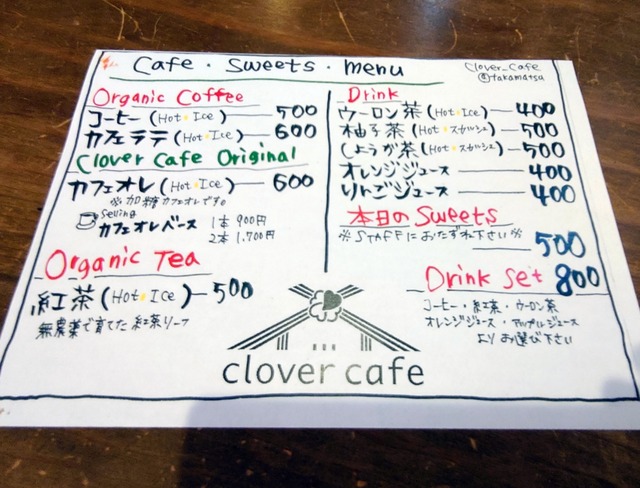 Cafe・Sweets・menu
Clover_Cafe
@takamatsu
Organic Coffee
コーヒー(Hot・Ice)—500
カフェラテ(Hot・Ice)—600
Clover Cafe Original
カフェオレ(Hot・Ice)—600
※加糖カフェオレです。
カフェオレベース 1本 900円
2本 1,700円
Organic Tea
紅茶(Hot・Ice)—500
無農薬で育てた紅茶リーフ
Drink
ウーロン茶(Hot・Ice)—400
柚子茶(Hot・スカルシュ)—500
しょうが茶(Hot・スカルシュ)—500
オレンジジュース—400
りんごジュース—400
本日のSweets
※STAFFにおたずね下さい※
500
Drink Set 800
コーヒー・紅茶・ウーロン茶
オレンジジュース・アップルジュース
よりお選び下さい
clover cafe